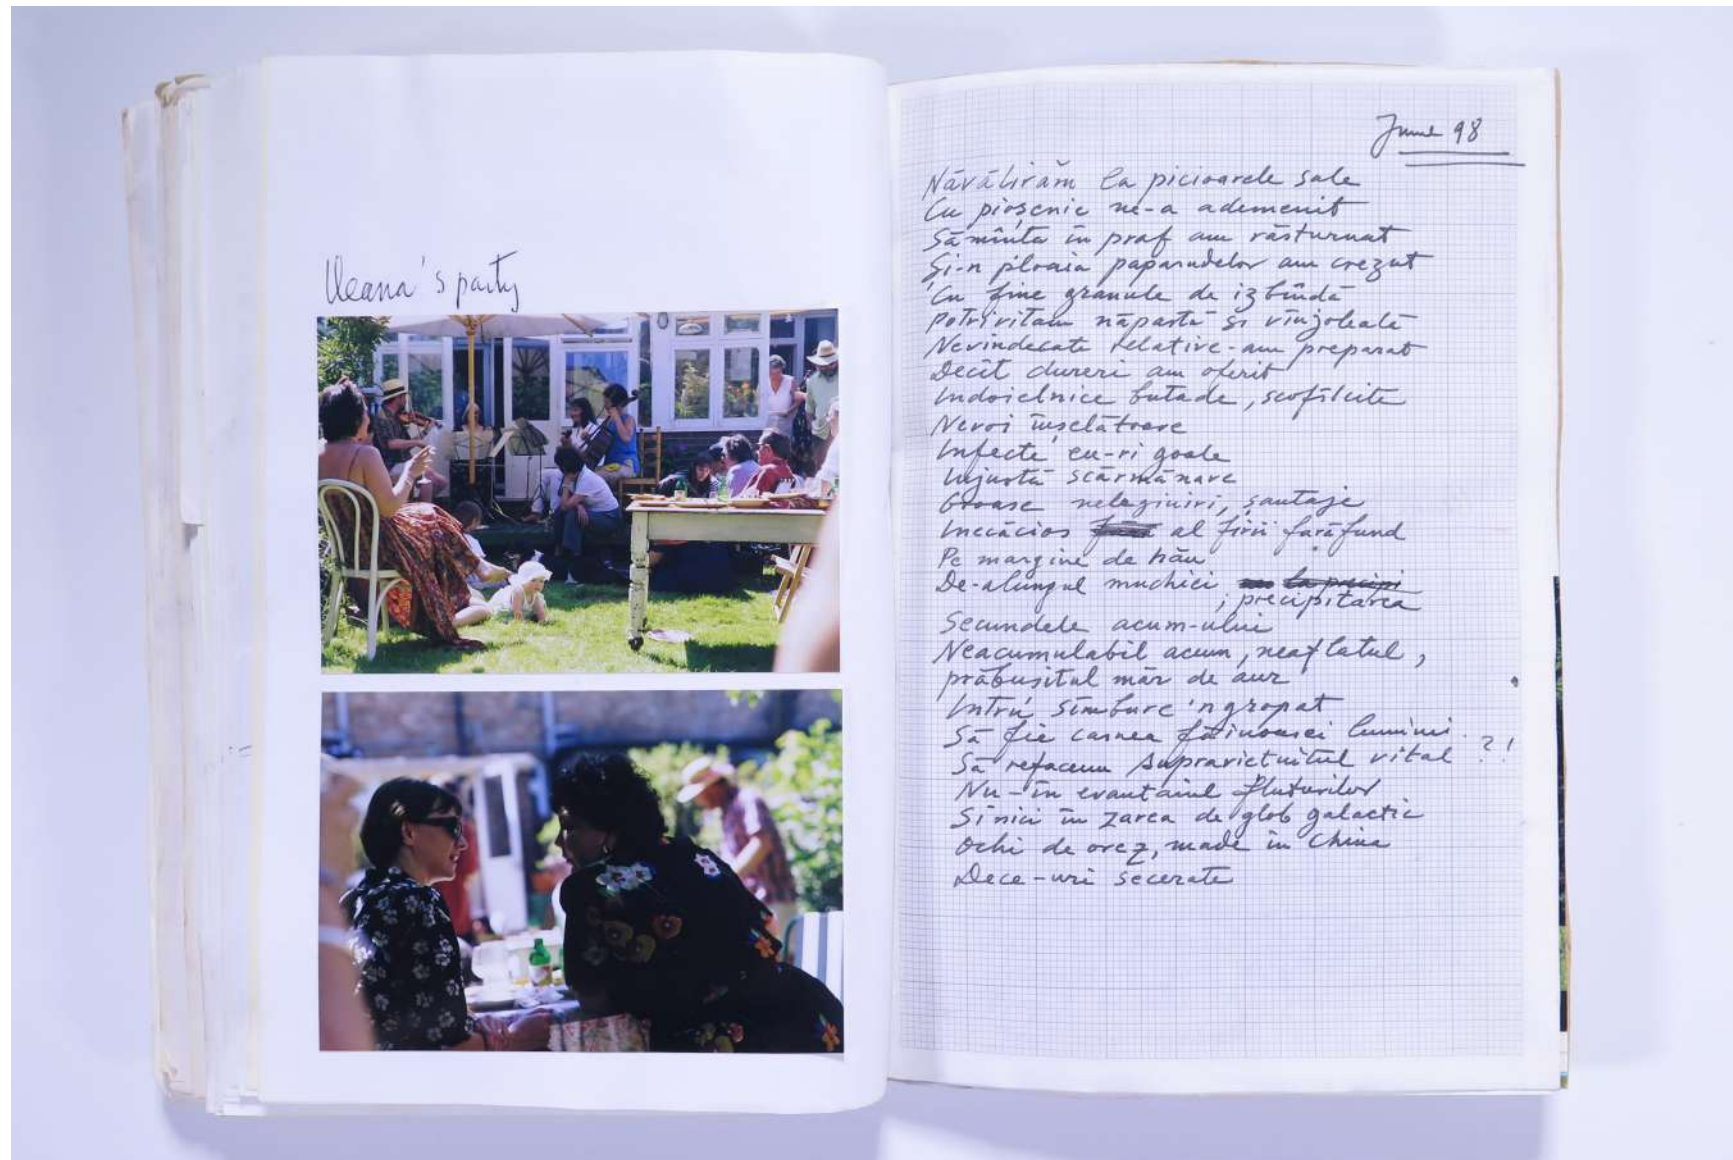 Ileana's party
June 98
Năvălirăm la picioarele sale
Cu pioșenie ne-a ademenit
Sămînța în praf am răsturnat
Și-n ploaia paparudelor am crezut
Cu fine granule de izbîndă
Potrivitam năpastă și vînjoleală
Nevindecate relative-am preparat
Decît dureri am oferit
Indoielnice butade, scofîlcite
Nevoi înșelătoare
Infecte eu-ri goale
Injustă scărmănare
Groase nelegiuiri, șantaje
Inecăcios al firii fărăfund
Pe margine de hău
De-alungul muchiei la precipi
, precipitarea
Secundele acum-ului
Neacumulabil acum, neaflatul,
prăbușitul măr de aur
Intru' sîmbure 'ngropat
Să fie carnea luminii
Să refacem supraviețuitul vital ?!
Nu-in evantaiul fluturilor
Si nici în zarea de glob galactic
Ochi de orez, made in China
Dece-uri secerate